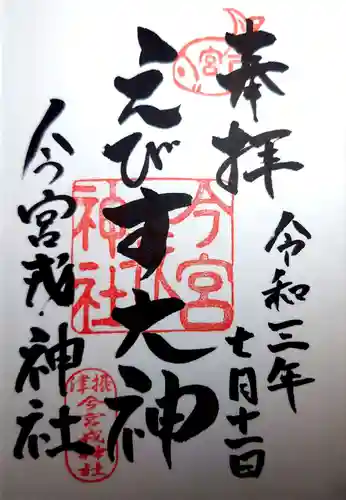 奉拝
令和三年
七月十一日
えびす大神
今宮戎神社
今宮
神社
摂津
今宮戎神社